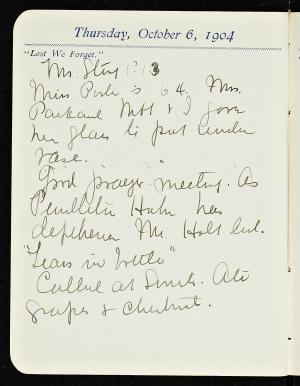 Thursday, October 6, 1904
"Lest We Forget."
Mr.
Miss is 64. Mrs.
Packard & I gave
her glass to put under
vase.
Good prayer meeting. As
Pendleton has
diphtheria Mr. Holt led.
"Tears in bottle"
Called at Ate
grapes & chestnuts.